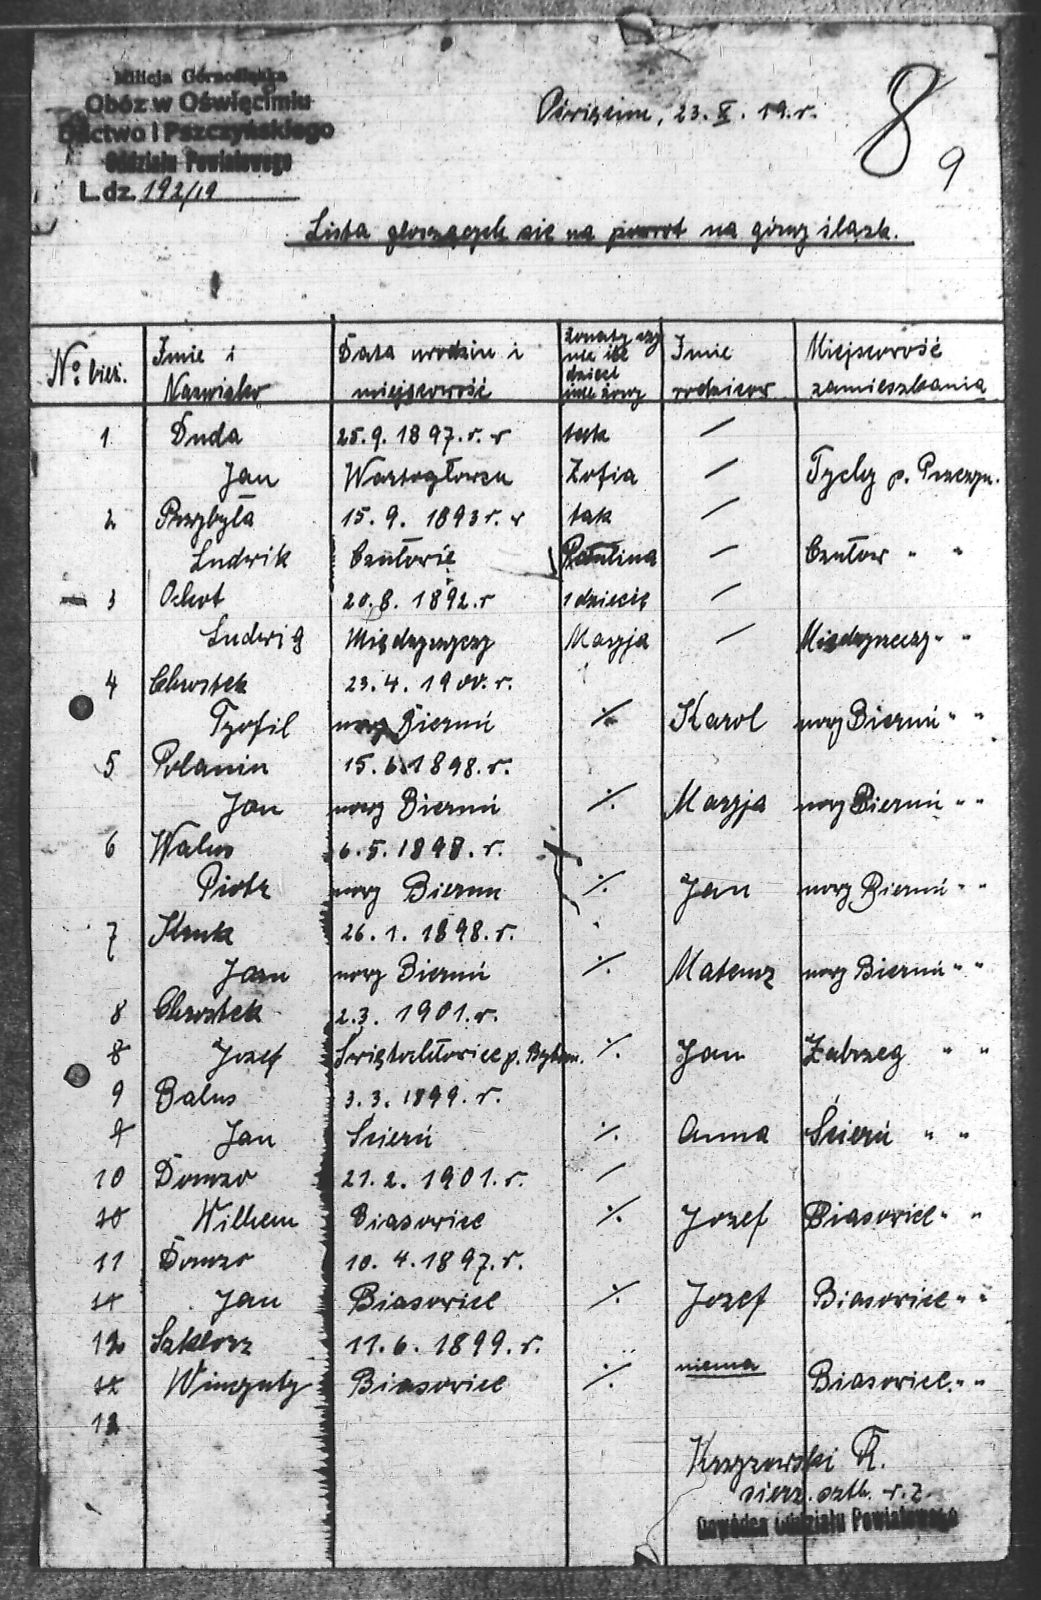 Milicja Górnośląska
Obóz w Oświęcimiu
D-ctwo I Pszczyńskiego
Oddziału Powiatowego
L. dz. 192/19
Oświęcim, 23. X. 19. r.
8 9
Lista głoszących się na powrot na górny śląsk.
No bież. Imie i Nazwisko Data urodzin i miejscowość żonaty czy nie ile dzieci imie żony Imie rodzicow Miejscowość zamieszkania
1 Duda 25. 9. 1897. r. w tak /
Jan Wartogłowcu Zofia / Tychy p. Pszczyn.
2 Przybyła 15. 9. 1893 r. w tak /
Ludwik Czułowie Paulina / Czułow " "
3 Ochot 20. 8. 1892. r 1 dziecię /
Ludwig Międzyrzeczy Maryja / Miedzyrzeczy " "
4 Chrostek 23. 4. 1900. r.
Tyofil nowy Bieruń ·/. Karol nowy Bieruń " "
5 Polanin 15. 6. 1898. r.
Jan nowy Bieruń ·/. Maryja nowy Bieruń " "
6 Walus 6. 5. 1898. r.
Piotr nowy Bierun ·/. Jan nowy Bieruń " "
7 Kruk 26. 1. 1898. r.
Jan nowy Bieruń ·/. Mateusz nowy Bieruń " "
8 Chrostek 2. 3. 1901. r.
8 Jozef Świętochłowice p. Bytom. ·/. Jan Zabrzeg " "
9 Balus 3. 3. 1899. r.
9 Jan Ścierń ·/. Anna Ścierń " "
10 Domzo 21. 2. 1901. r. /
10 Wilhem Biasowice ·/. Jozef Biasowice " "
11 Domzo 10. 4. 1897. r.
11 Jan Biasowice ·/. Jozef Biasowice " "
12 Szklorz 11. 6. 1899. r.
12 Wincynty Biasowice ·/. niema Biasowice " "
13
Krzyzowski R.
sierz. sztb. r. z.
Dowódca Oddziału Powiatowego